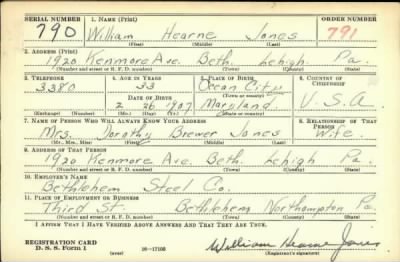 SERIAL NUMBER 1. NAME (Print) ORDER NUMBER
790 William Hearne Jones 791
(First) (Middle) (Last)
2. ADDRESS (Print)
1920 Kenmore Ave. Beth. Lehigh Pa.
(Number and street or R. F. D. number) (Town) (County) (State)
3. TELEPHONE 4. AGE IN YEARS 5. PLACE OF BIRTH 6. COUNTRY OF CITIZENSHIP
3380 33 Ocean City U.S.A.
DATE OF BIRTH (Town or county)
2 26 1907 Maryland
(Exchange) (Number) (Mo.) (Day) (Yr.) (State or country)
7. NAME OF PERSON WHO WILL ALWAYS KNOW YOUR ADDRESS 8. RELATIONSHIP OF THAT PERSON
Mrs. Dorothy Brewer Jones Wife
(Mr., Mrs., Miss) (First) (Middle) (Last)
9. ADDRESS OF THAT PERSON
1920 Kenmore Ave. Beth. Lehigh Pa.
(Number and street or R. F. D. number) (Town) (County) (State)
10. EMPLOYER'S NAME
Bethlehem Steel Co.
11. PLACE OF EMPLOYMENT OR BUSINESS
Third St. Bethlehem Northampton Pa
(Number and street or R. F. D. number) (Town) (County) (State)
I AFFIRM THAT I HAVE VERIFIED ABOVE ANSWERS AND THAT THEY ARE TRUE.
REGISTRATION CARD
D. S. S. Form 1 16—17105 William Hearne Jones
(Registrant's signature)